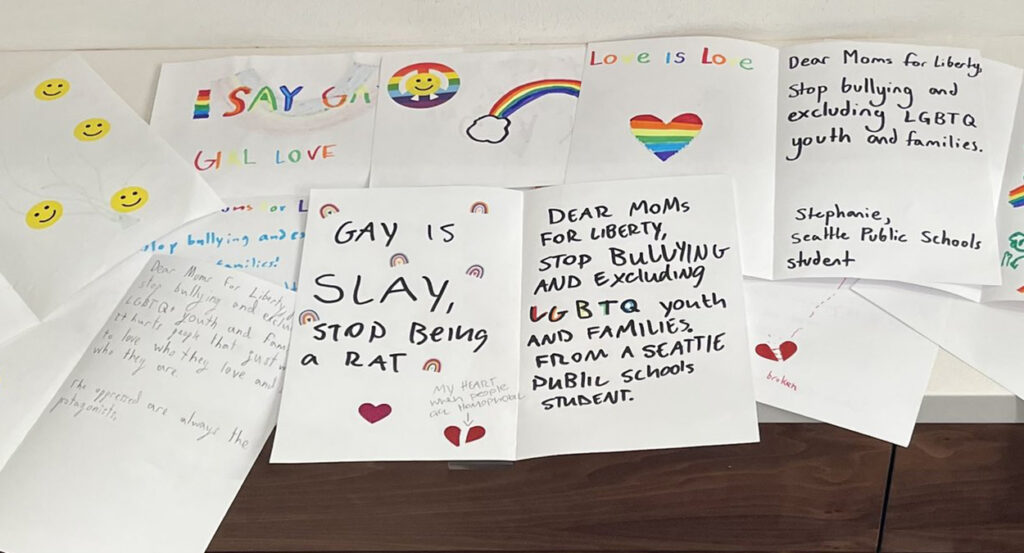 I SAY GA
GIRL LOVE
Love is Love
Dear Moms for Liberty,
Stop bullying and
excluding LGBTQ
youth and families.
Stephanie,
Seattle Public Schools
student
for L
stop bullying and ex
families!
Dear Moms For Liberty,
stop bullying and exclu
LGBTQ+ youth and fam
It hurts people that just w
to love who they love and
who they are.
The oppressed are always the
potagonists.
GAY IS
SLAY,
STOP Being
a RAT
MY HEART
when people
are Homophobic
DEAR MOMS
FOR LIBERTY,
STOP BULLYING
AND Excluding
LGBTQ youth
AND FAMILIES.
FROM A SEATTLE
PUBLIC Schools
STUDENT.
broken